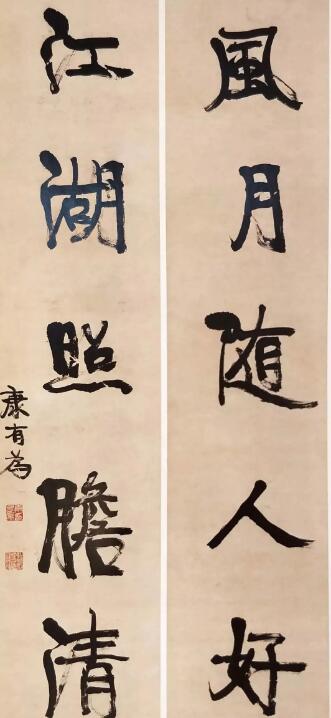 風月随人好
江湖照膽清
康有為